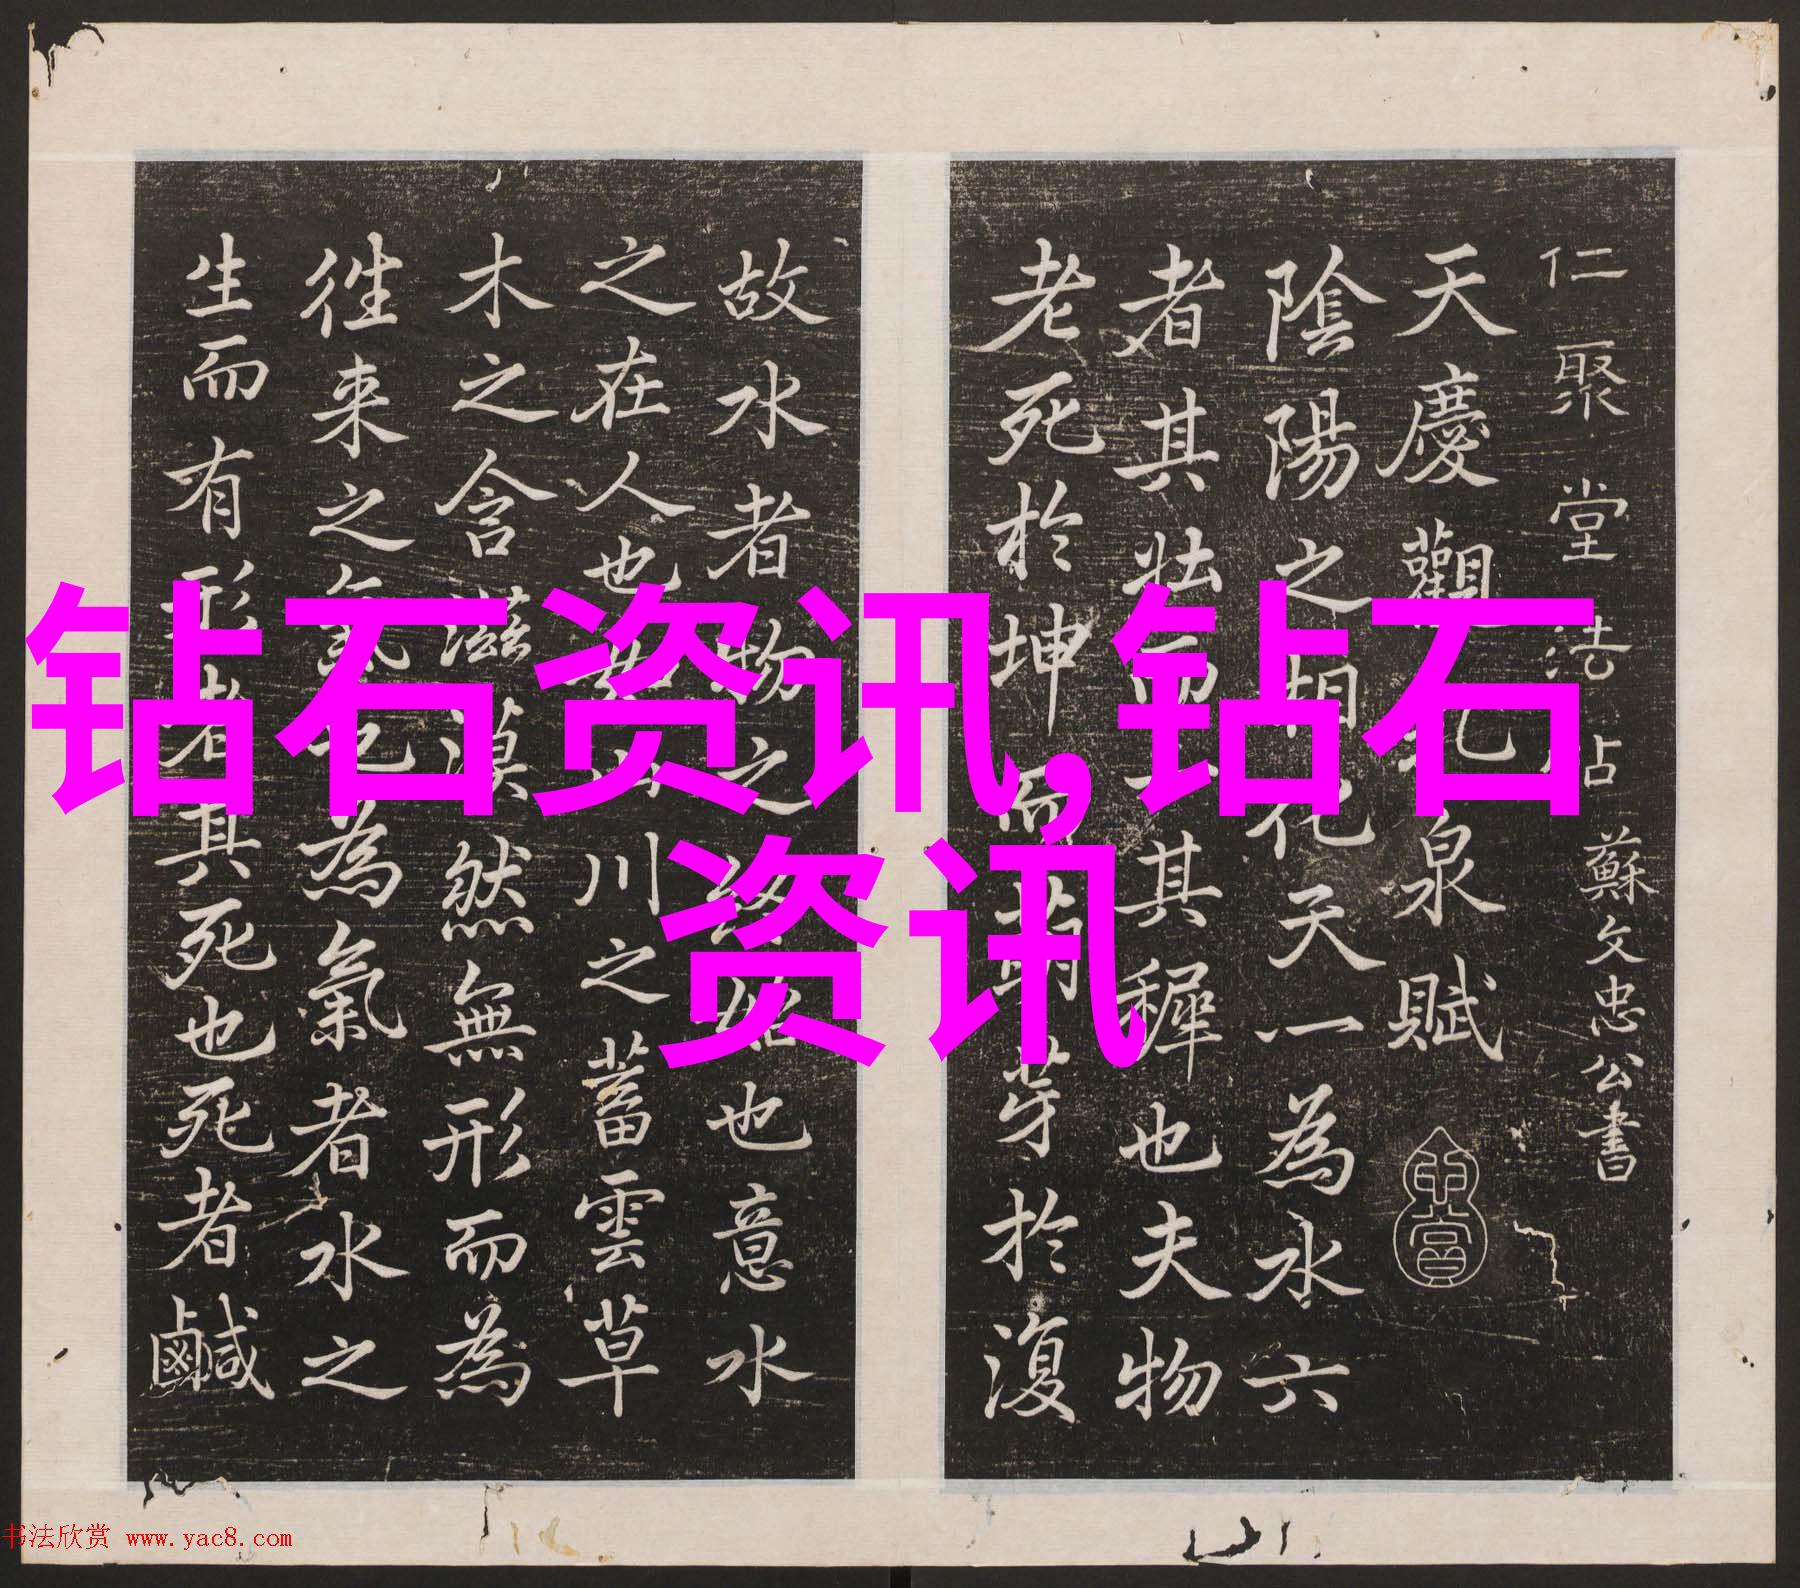 钻石资讯,钻石
资讯
仁聚堂法帖 蘇文忠公書
天慶觀乳泉賦
陰陽之相化天一為水六
者其壯而一其穉也夫物
老死於坤而萌芽於復
故水者物之終始也意水
之在人也如山川之蓄雲草
木之含滋漠然無形而為
往来之氣也為氣者水之
生而有形者其死也死者鹹
书法欣赏 www.yac8.com